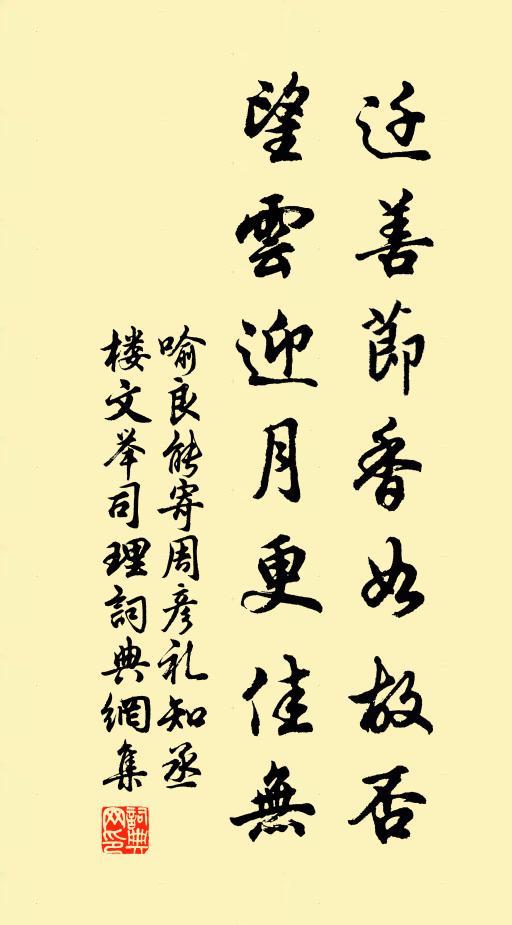 迁善節香如故否
望雲迎月更佳無
喻良能寄周彦礼知丞
楼文举司理詞典網集
詞典
网印